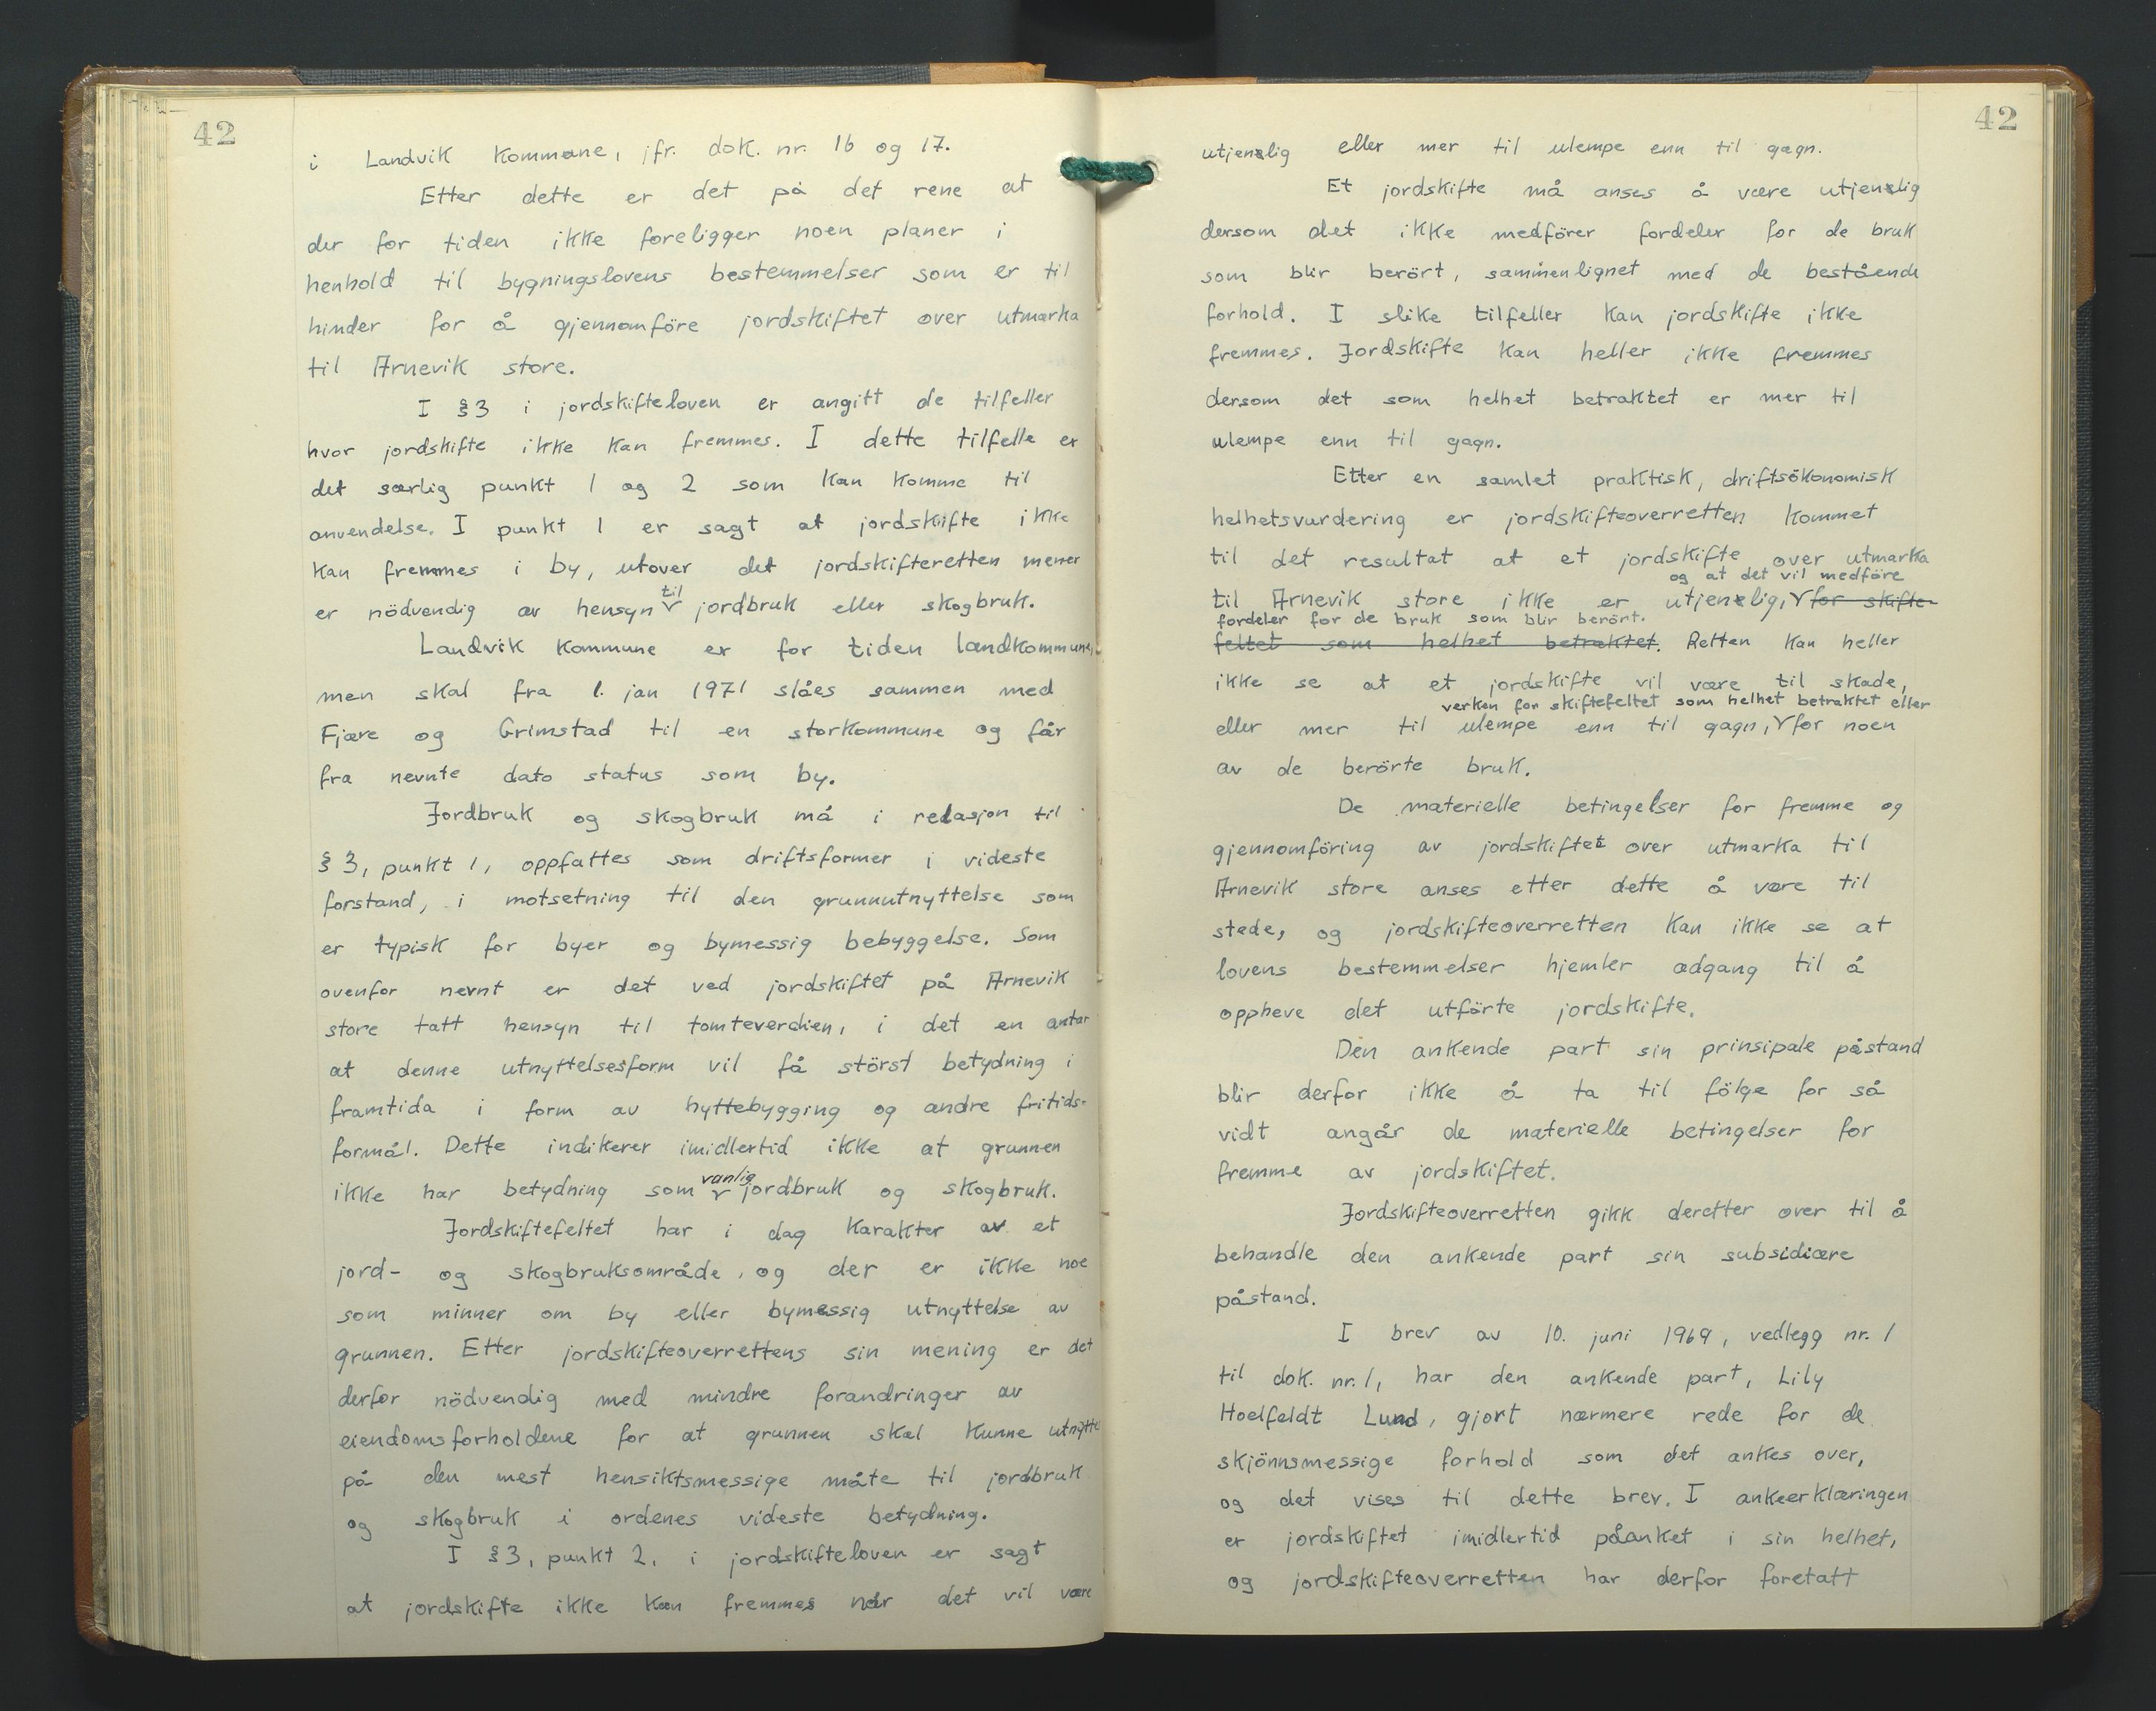 42
i Landvik Kommune, jfr. dok. nr. 16 og 17.
Etter dette er det på det rene at
der for tiden ikke foreligger noen planer i
henhold til bygningslovens bestemmelser som er til
hinder for å gjennomföre jordskiftet over utmarka
til Arnevik store.
I §3 i jordskifteloven er angitt de tilfeller
hvor jordskifte ikke kan fremmes. I dette tilfelle er
det særlig punkt 1 og 2 som kan komme til
anvendelse. I punkt 1 er sagt at jordskifte ikke
kan fremmes i by, utover det jordskifteretten mener
til
er nödvendig av hensyn jordbruk eller skogbruk.
Landvik kommune er for tiden landkommune,
men skal fra 1. jan 1971 slåes sammen med
Fjære og Grimstad til en storkommune og får
fra nevnte dato status som by.
Jordbruk og skogbruk må i relasjon til
§ 3, punkt 1, oppfattes som driftsformer i videste
forstand, i motsetning til den grunnutnyttelse som
er typisk for byer og bymessig bebyggelse. Som
ovenfor nevnt er det ved jordskiftet på Arnevik
store tatt hensyn til tomteverdien, i det en antar
at denne utnyttelsesform vil få störst betydning i
framtida i form av hyttebygging og andre fritids-
formål. Dette indikerer imidlertid ikke at grunnen
vanlig
ikke har betydning som jordbruk og skogbruk.
Jordskiftefeltet har i dag karakter av et
jord- og skogbruksområde, og der er ikke noe
som minner om by eller bymessig utnyttelse av
grunnen. Etter jordskifteoverrettens sin mening er det
derfor nödvendig med mindre forandringer av
eiendomsforholdene for at grunnen skal kunne utnyttes
på den mest hensiktsmessige måte til jordbruk
og skogbruk i ordenes videste betydning.
I §3, punkt 2, i jordskifteloven er sagt
at jordskifte ikke kan fremmes når det vil være
42
utjenslig eller mer til ulempe enn til gagn.
Et jordskifte må anses å være utjenslig
dersom det ikke medförer fordeler for de bruk
som blir berört, sammenlignet med de bestående
forhold. I slike tilfeller kan jordskifte ikke
fremmes. Jordskifte kan heller ikke fremmes
dersom det som helhet betraktet er mer til
ulempe enn til gagn.
Etter en samlet praktisk, driftsökonomisk
helhetsvurdering er jordskifteoverretten kommet
til det resultat at et jordskifte over utmarka
og at det vil medföre
til Arnevik store ikke er utjenslig, for skifte-
fordeler for de bruk som blir berört.
feltet som helhet betraktet. Retten kan heller
ikke se at et jordskifte vil være til skade,
verken for skiftefeltet som helhet betraktet eller
eller mer til ulempe enn til gagn, for noen
av de berörte bruk.
De materielle betingelser for fremme og
gjennomföring av jordskiftet over utmarka til
Arnevik store anses etter dette å være til
stede, og jordskifteoverretten kan ikke se at
lovens bestemmelser hjemler adgang til å
oppheve det utförte jordskifte.
Den ankende part sin prinsipale påstand
blir derfor ikke å ta til fölge for så
vidt angår de materielle betingelser for
fremme av jordskiftet.
Jordskifteoverretten gikk deretter over til å
behandle den ankende part sin subsidiære
påstand.
I brev av 10. juni 1969, vedlegg nr. 1
til dok. nr. 1, har den ankende part, Lily
Hoelfeldt Lund, gjort nærmere rede for de
skjönnsmessige forhold som det ankes over,
og det vises til dette brev. I ankeerklæringen
er jordskiftet imidlertid påanket i sin helhet,
og jordskifteoverretten har derfor foretatt